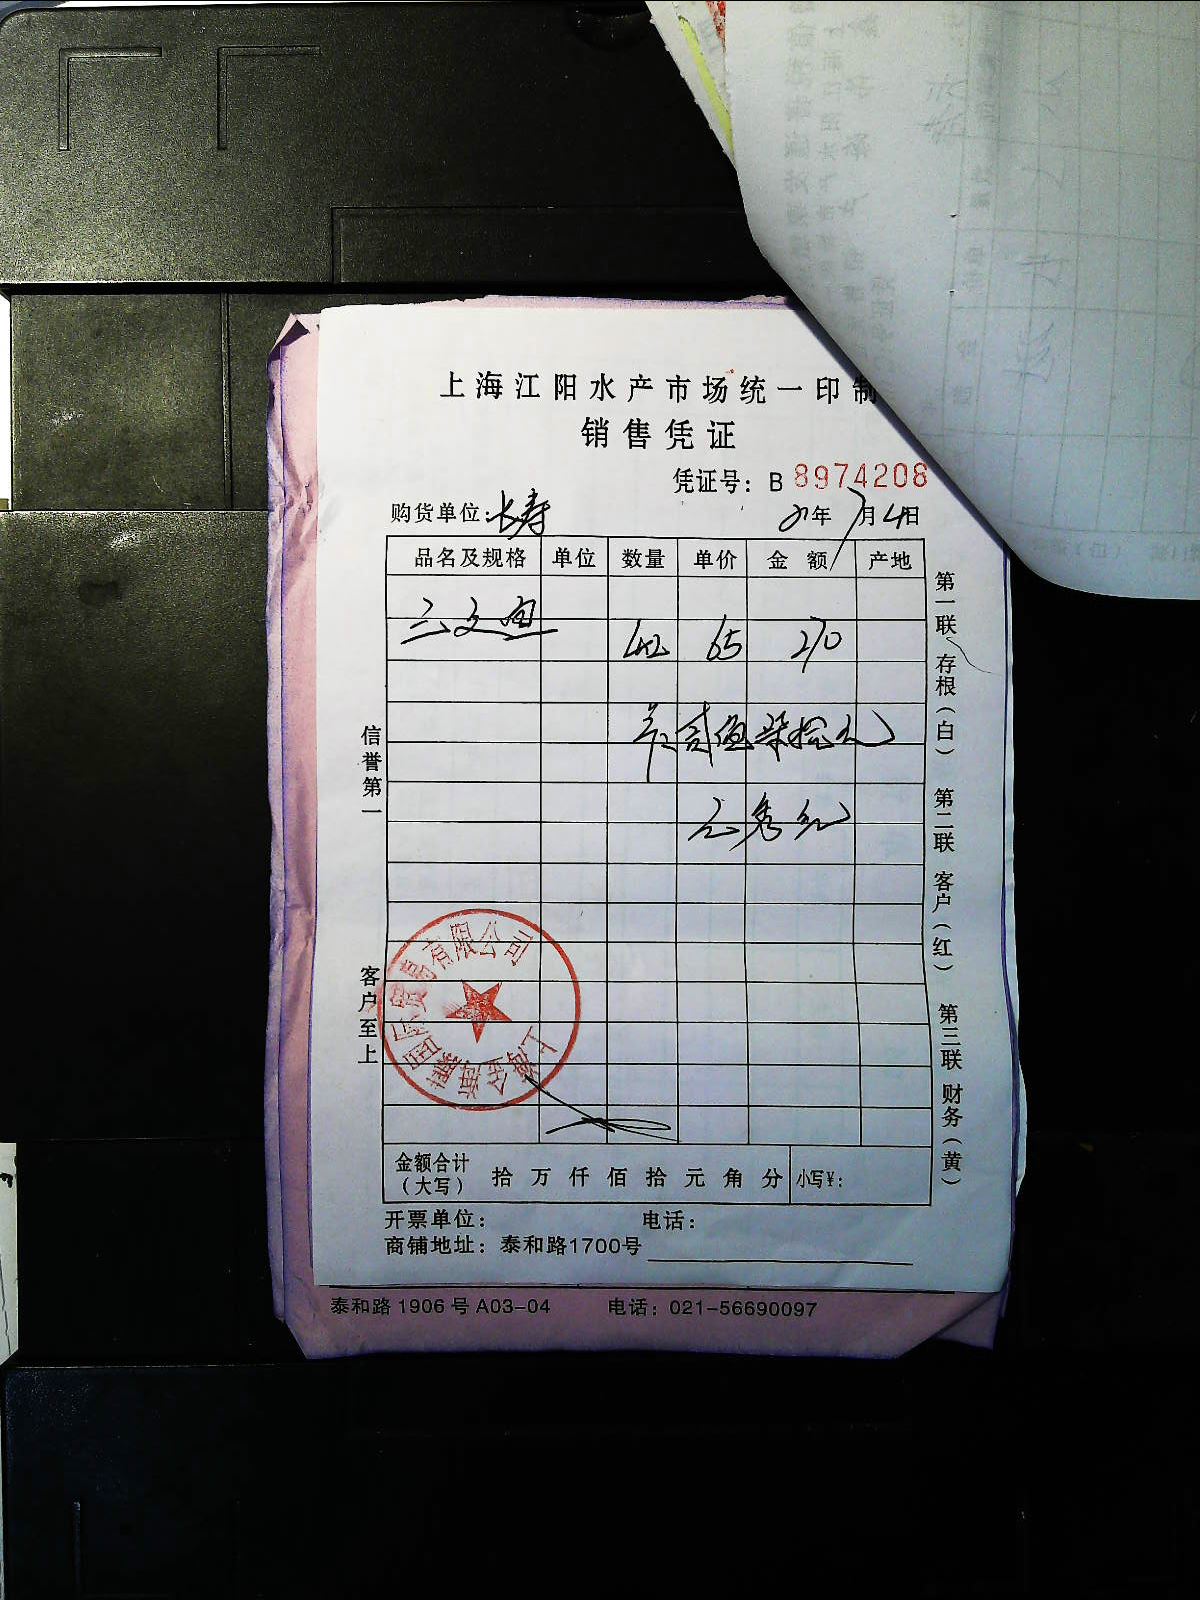 上海江阳水产市场统一印制
销售凭证
凭证号：B 8974208
购货单位：长寿 21年7月4日
品名及规格 单位 数量 单价 金额 产地
三文鱼 65 270
贰佰柒拾元
信誉第一
客户至上
第一联 存根（白） 第二联 客户（红） 第三联 财务（黄）
贸易有限公司
上海
金额合计（大写） 拾 万 仟 佰 拾 元 角 分 小写¥：
开票单位： 电话：
商铺地址：泰和路1700号
泰和路 1906 号 A03-04 电话：021-56690097